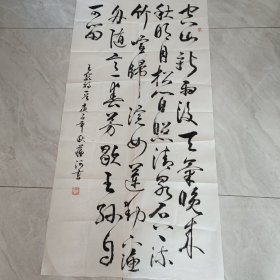 空山新雨後天氣晚來
秋明月松間照清泉石上流
竹喧歸浣女蓮動下漁
舟随意春芳歇王孫自
可留
王維詩庚子年秋書